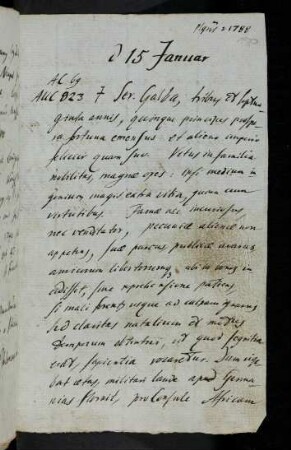 d 15 Januar
AC 69
AUC 823 † Ser. Galba, tribus et septua
ginta annis, quinque principes prospe
ra fortuna emensus: et alieno imperio
felicior quam suo. Vetus in familia
nobilitas, magnae opes: ipsi medium in
genium magis extra vitia, quam cum
virtutibus. Famae nec incuriosus
nec venditator, pecuniae alienae non
appetens, suae parcus publicae avarus
amicorum libertorumq. ubi in bonos in
cidisset, sine reprehensione patiens
si mali forent, usque ad culpam ignarus
sed claritas natalium et metus
temporum obtentui, ut quod segnitia
erat, sapientia vocaretur. Dum vige
bat aetas, militari laude apud Germa
nias floruit, pro Consule Africam